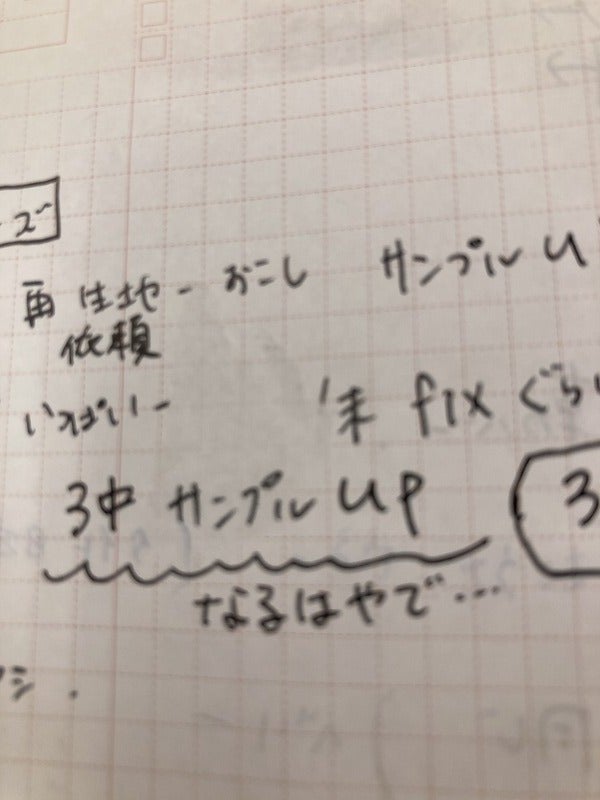 ズ
再 生地 - おこし サンプル U
依頼
いっぱい - '末 fix ぐら
3中 サンプル UP 3
なるはやで…
シ.